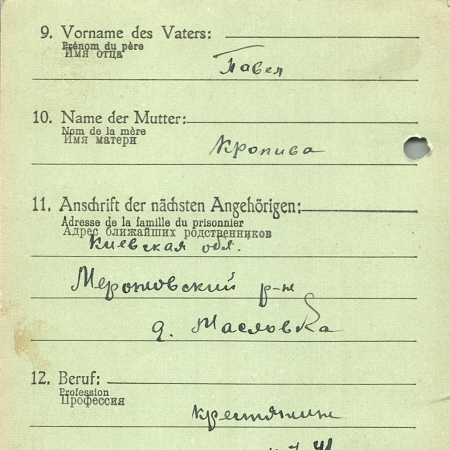 9. Vorname des Vaters:
Prénom du père
Имя отца
Павел
10. Name der Mutter:
Nom de la mère
Имя матери
Кропива
11. Anschrift der nächsten Angehörigen:
Adresse de la famille du prisonnier
Адрес ближайших родственников
Киевская обл.
р-н
д. Масловка
12. Beruf:
Profession
Профессия
крестянин